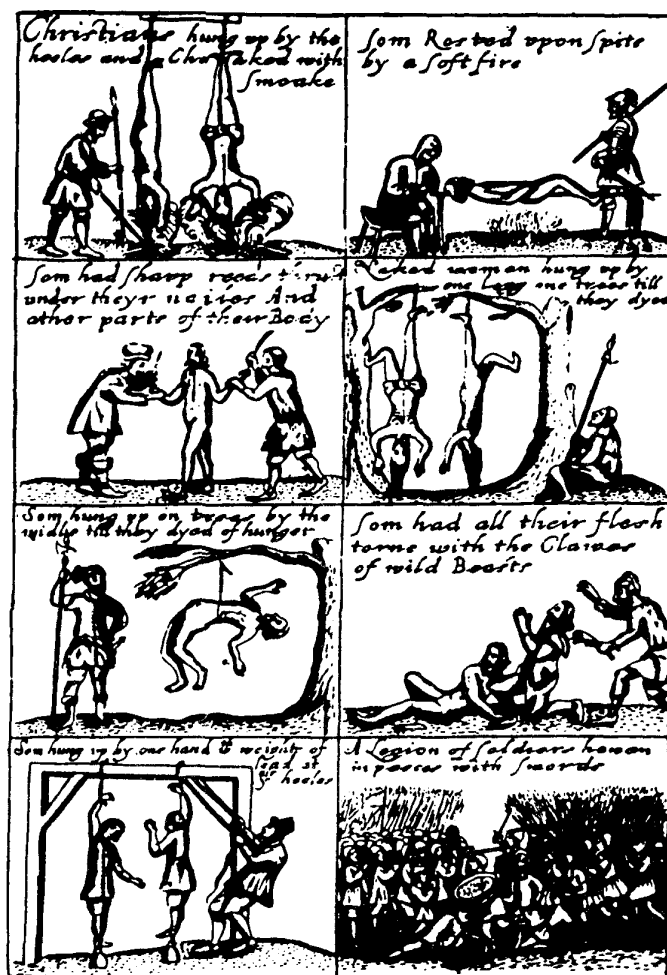 Christians hung up by the
heeles and choaked with
Smoake
Som Rosted upon Spits
by a Soft fire
Som had Sharp reeds thrust
under theyr nailes And
other parts of their Body
Naked woman hung up by
one leg one trees till
they dyed
Som hung up on trees by the
midle till they dyed of hunger
Som had all their flesh
torne with the Clawes
of wild Beasts
Som hung up by one hand & weights of
lead at
yr heeles
A Legion of Soldiers hewen
in peeces with Swords